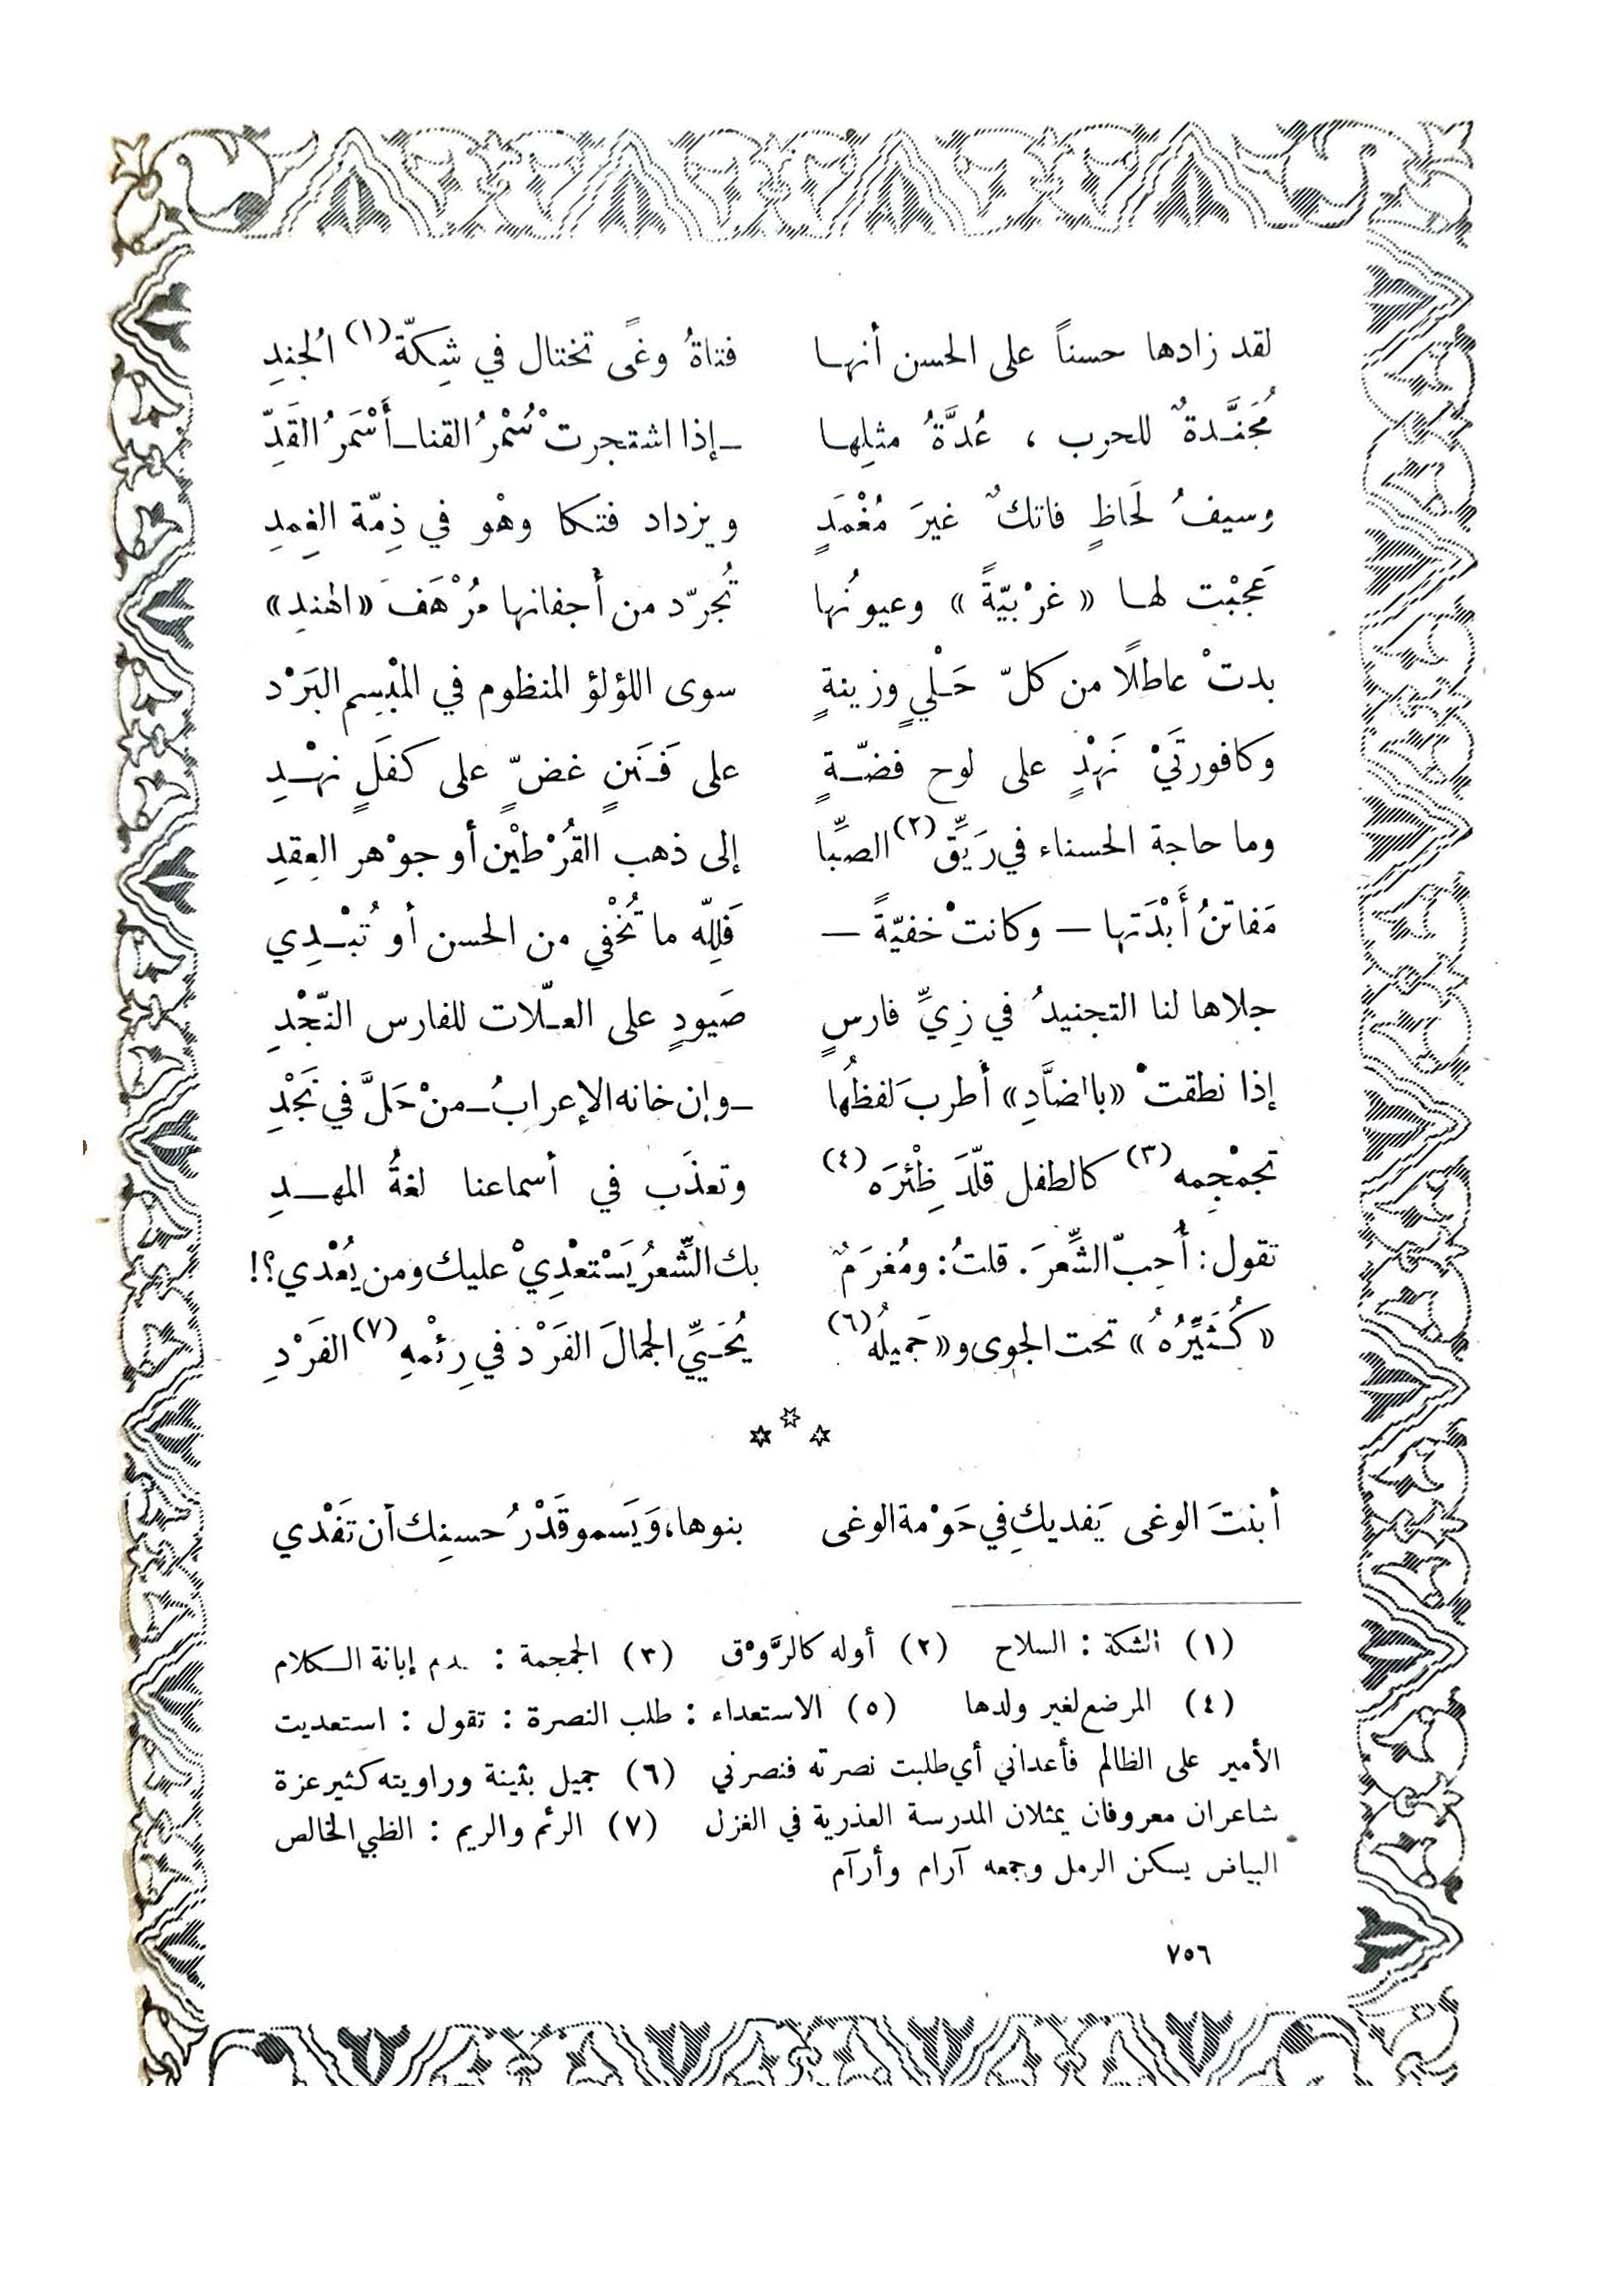 لقد زادها حسناً على الحسن أنهـا فتاةُ وغىً تختال في شِكّة (١) الجندِ
مُجَنَّـدةٌ للحرب ، عُدَّةُ مثلِهـا ـ إذا اشتجرتْ سُمْرُ القنا ـ أَسْمَرُ القَدِّ
وسيفُ لَحَاظٍ فاتكٌ غيرَ مُغْمَدٍ ويزداد فتكا وهْو في ذِمّة الغِمدِ
عَجبْت لهـا « غرْبيّةً » وعيونُها تُجرّد من أجفانها مُرْهَفَ «الهندِ»
بدتْ عاطلًا من كلّ حَـلْيٍ وزينةٍ سوى اللؤلؤ المنظوم في المْبسِم البَرَْد
وكافورتَيْ نَهْدٍ على لوح فضّـةٍ على فَـنَنٍ غضّ ٍ على كفَلٍ نهْـدِ
وما حاجة الحسناء في رَيِّق (٢) الصبِّا إلى ذهب القُرْطيْن أو جوْهر العِقدِ
مَفاتنُ أَبْدَتها — وكانتْ خفيّةً — فَلِلّه ما تُخْفي من الحسن أو تُبْـدِي
جلاها لنا التجنيدُ في زِيِّ فارسٍ صَيودٍ على العـلّات للفارس النّجْدِ
إذا نطقتْ «بالضَّادِ» أطرب لَفظُها ـ وإن خانه الإعرابُ ـ منْ حَلَّ في نَجْدِ
تجمْجِمه (٣) كالطفل قلّدَ ظِئْرَه (٤) وتعذَب في أسماعنا لغةُ المهـدِ
تقول: أُحِبّ الشِّعرَ . قلتُ: ومُغرَمٌ بك الشِّعرُ يَسْتعْدِيْ عليك ومن يُعْدي؟!
«كُثَيِّرُهُ» تحت الجوى و«جَميلُه (٦) يُحَـيِّي الجمالَ الفَرْدَ في رِئمْهِ (٧) الفَرْدِ
أبنتَ الوغى يَفديكِ في حَوْمة الوغى بنوها، وَيَسمو قَدْرُ حسنِك أن تَفْدي
(١) الشكة : السلاح (٢) أوله كالرَّوْق (٣) الجمجمة : عدم إبانة الـكلام
(٤) المرضع لغير ولدها (٥) الاستعداء : طلب النصرة : تقول : استعديت
الأمير على الظالم فأعداني أي طلبت نصرته فنصرني (٦) جميل بثينة وراويته كثير عزة
شاعران معروفان يمثلان المدرسة العذرية في الغزل (٧) الرئم والريم : الظبي الخالص
البياض يسكن الرمل وجمعه آرام وأرآم
٧٥٦